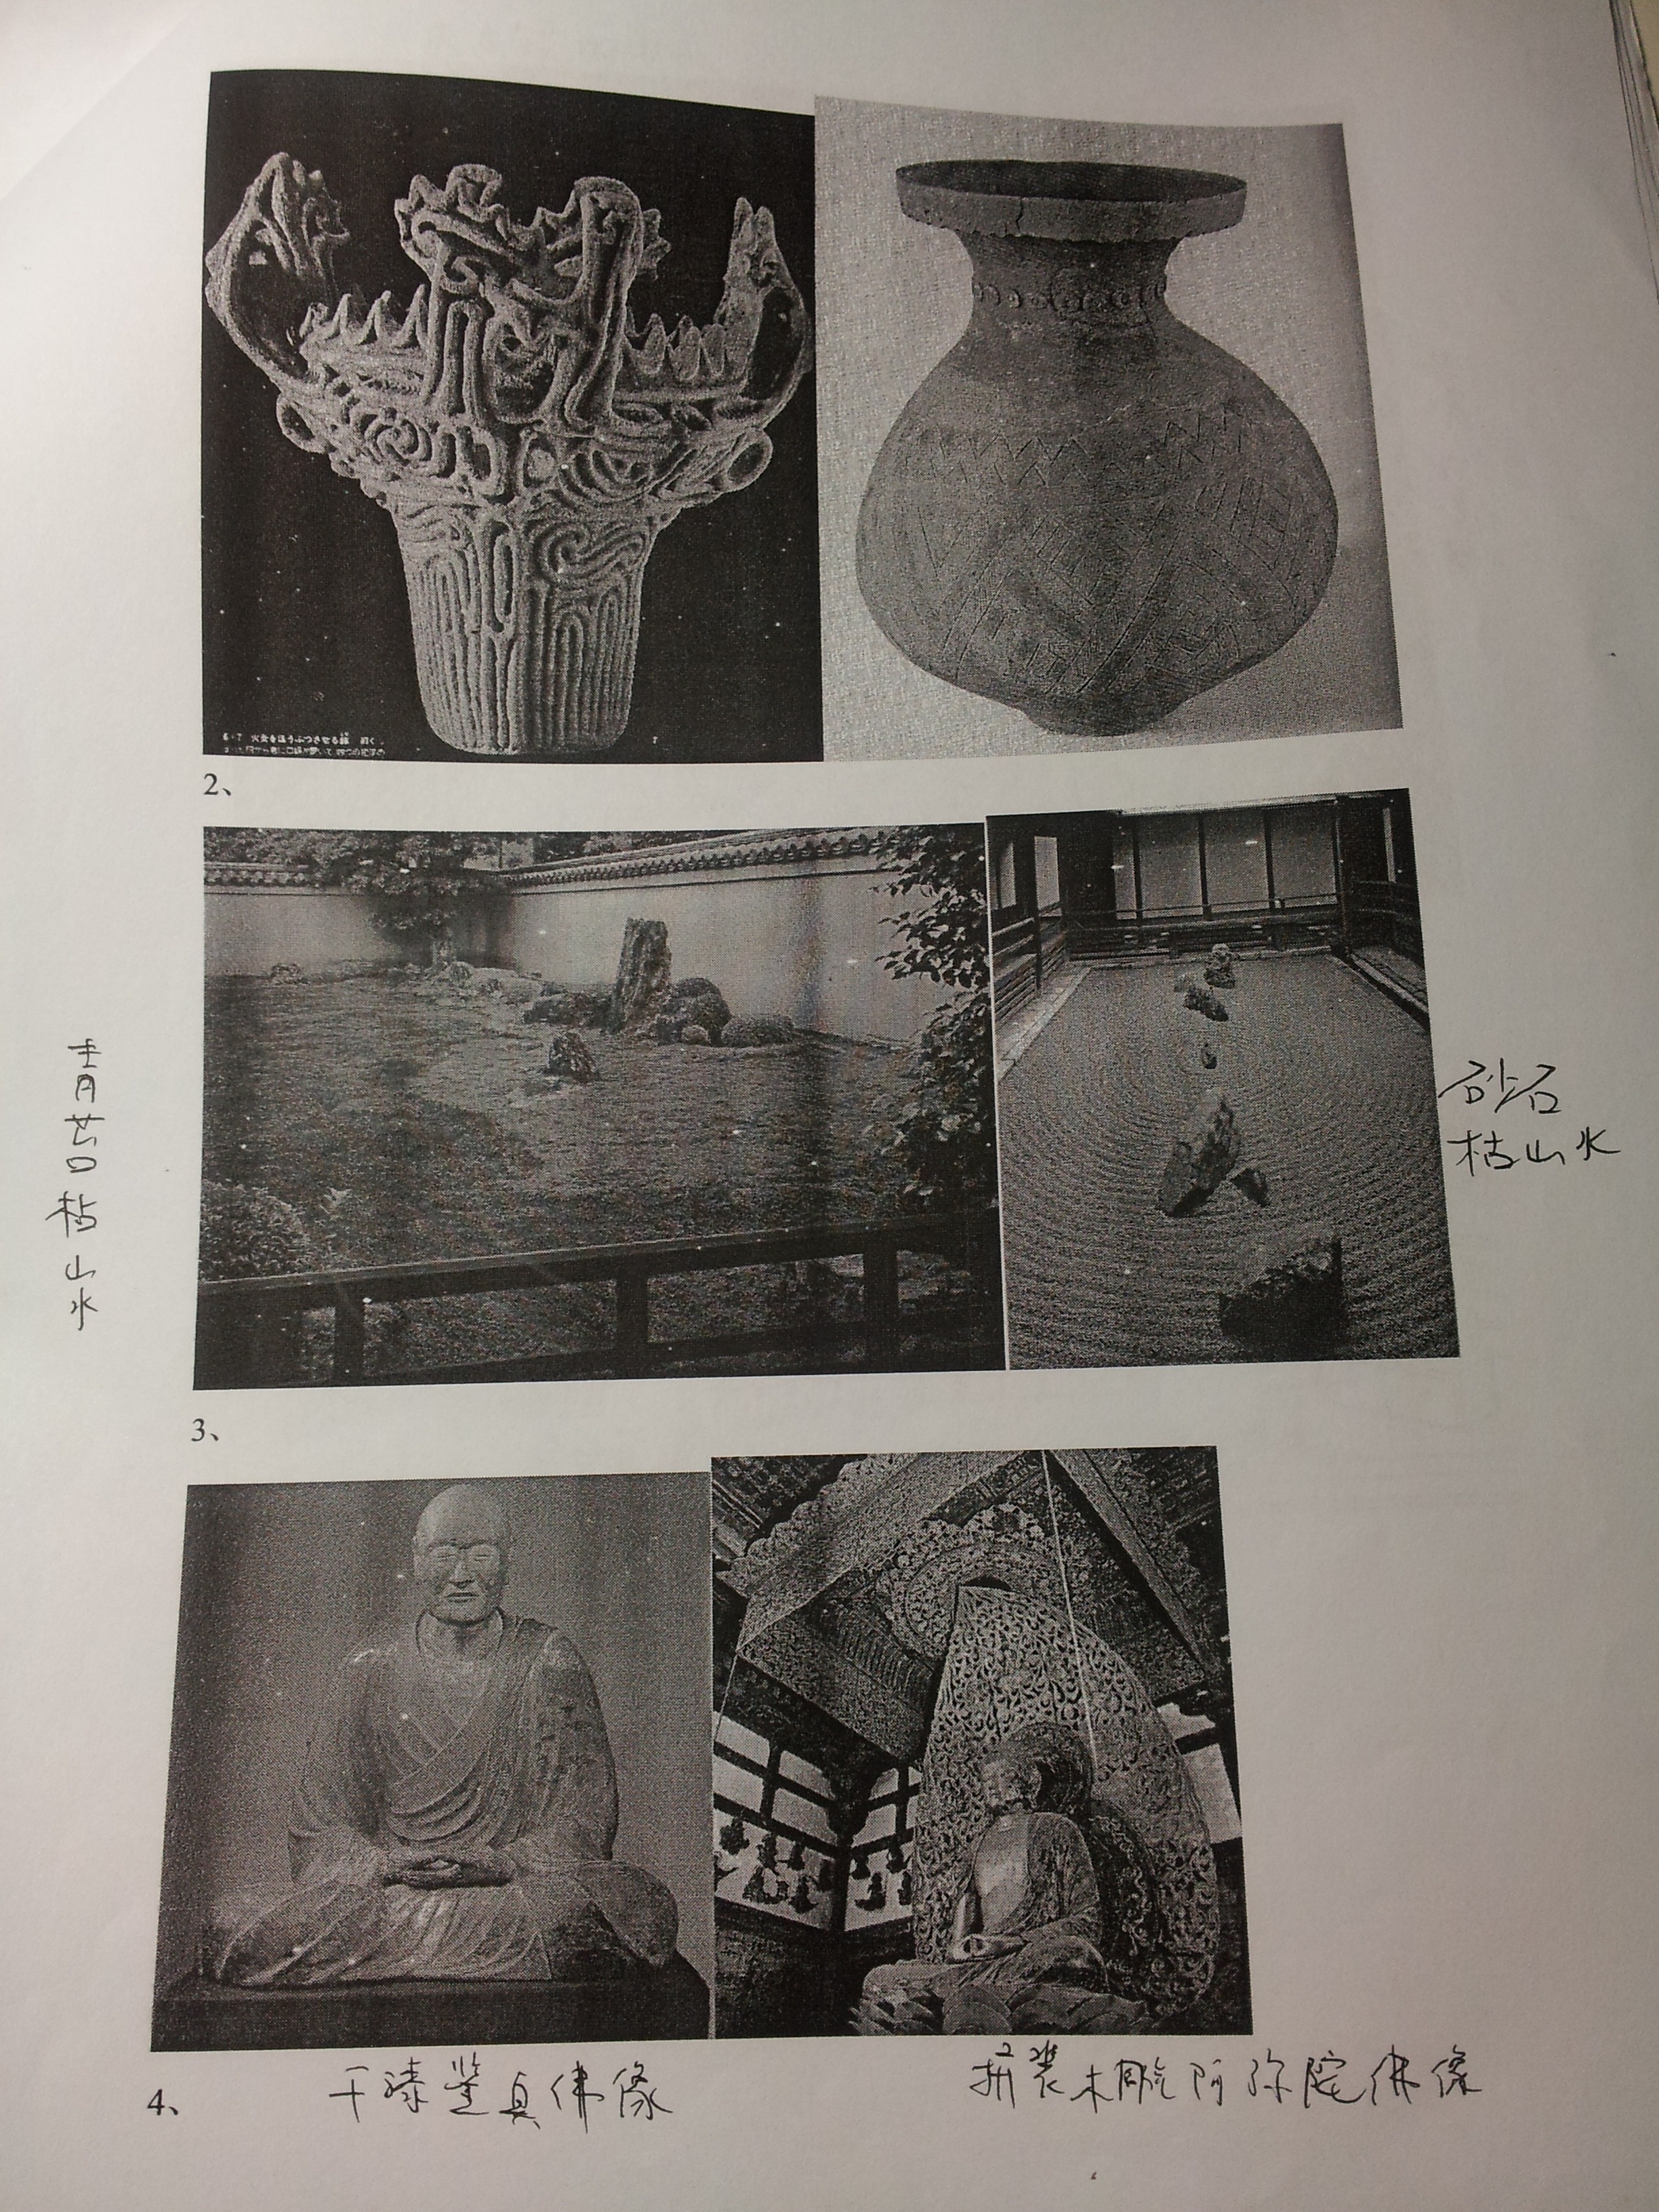 6・7 火炎をほうふつさせる
2、
青苔枯山水
砂石
枯山水
3、
干漆鉴真佛像
拼装木雕阿弥陀佛像
4、